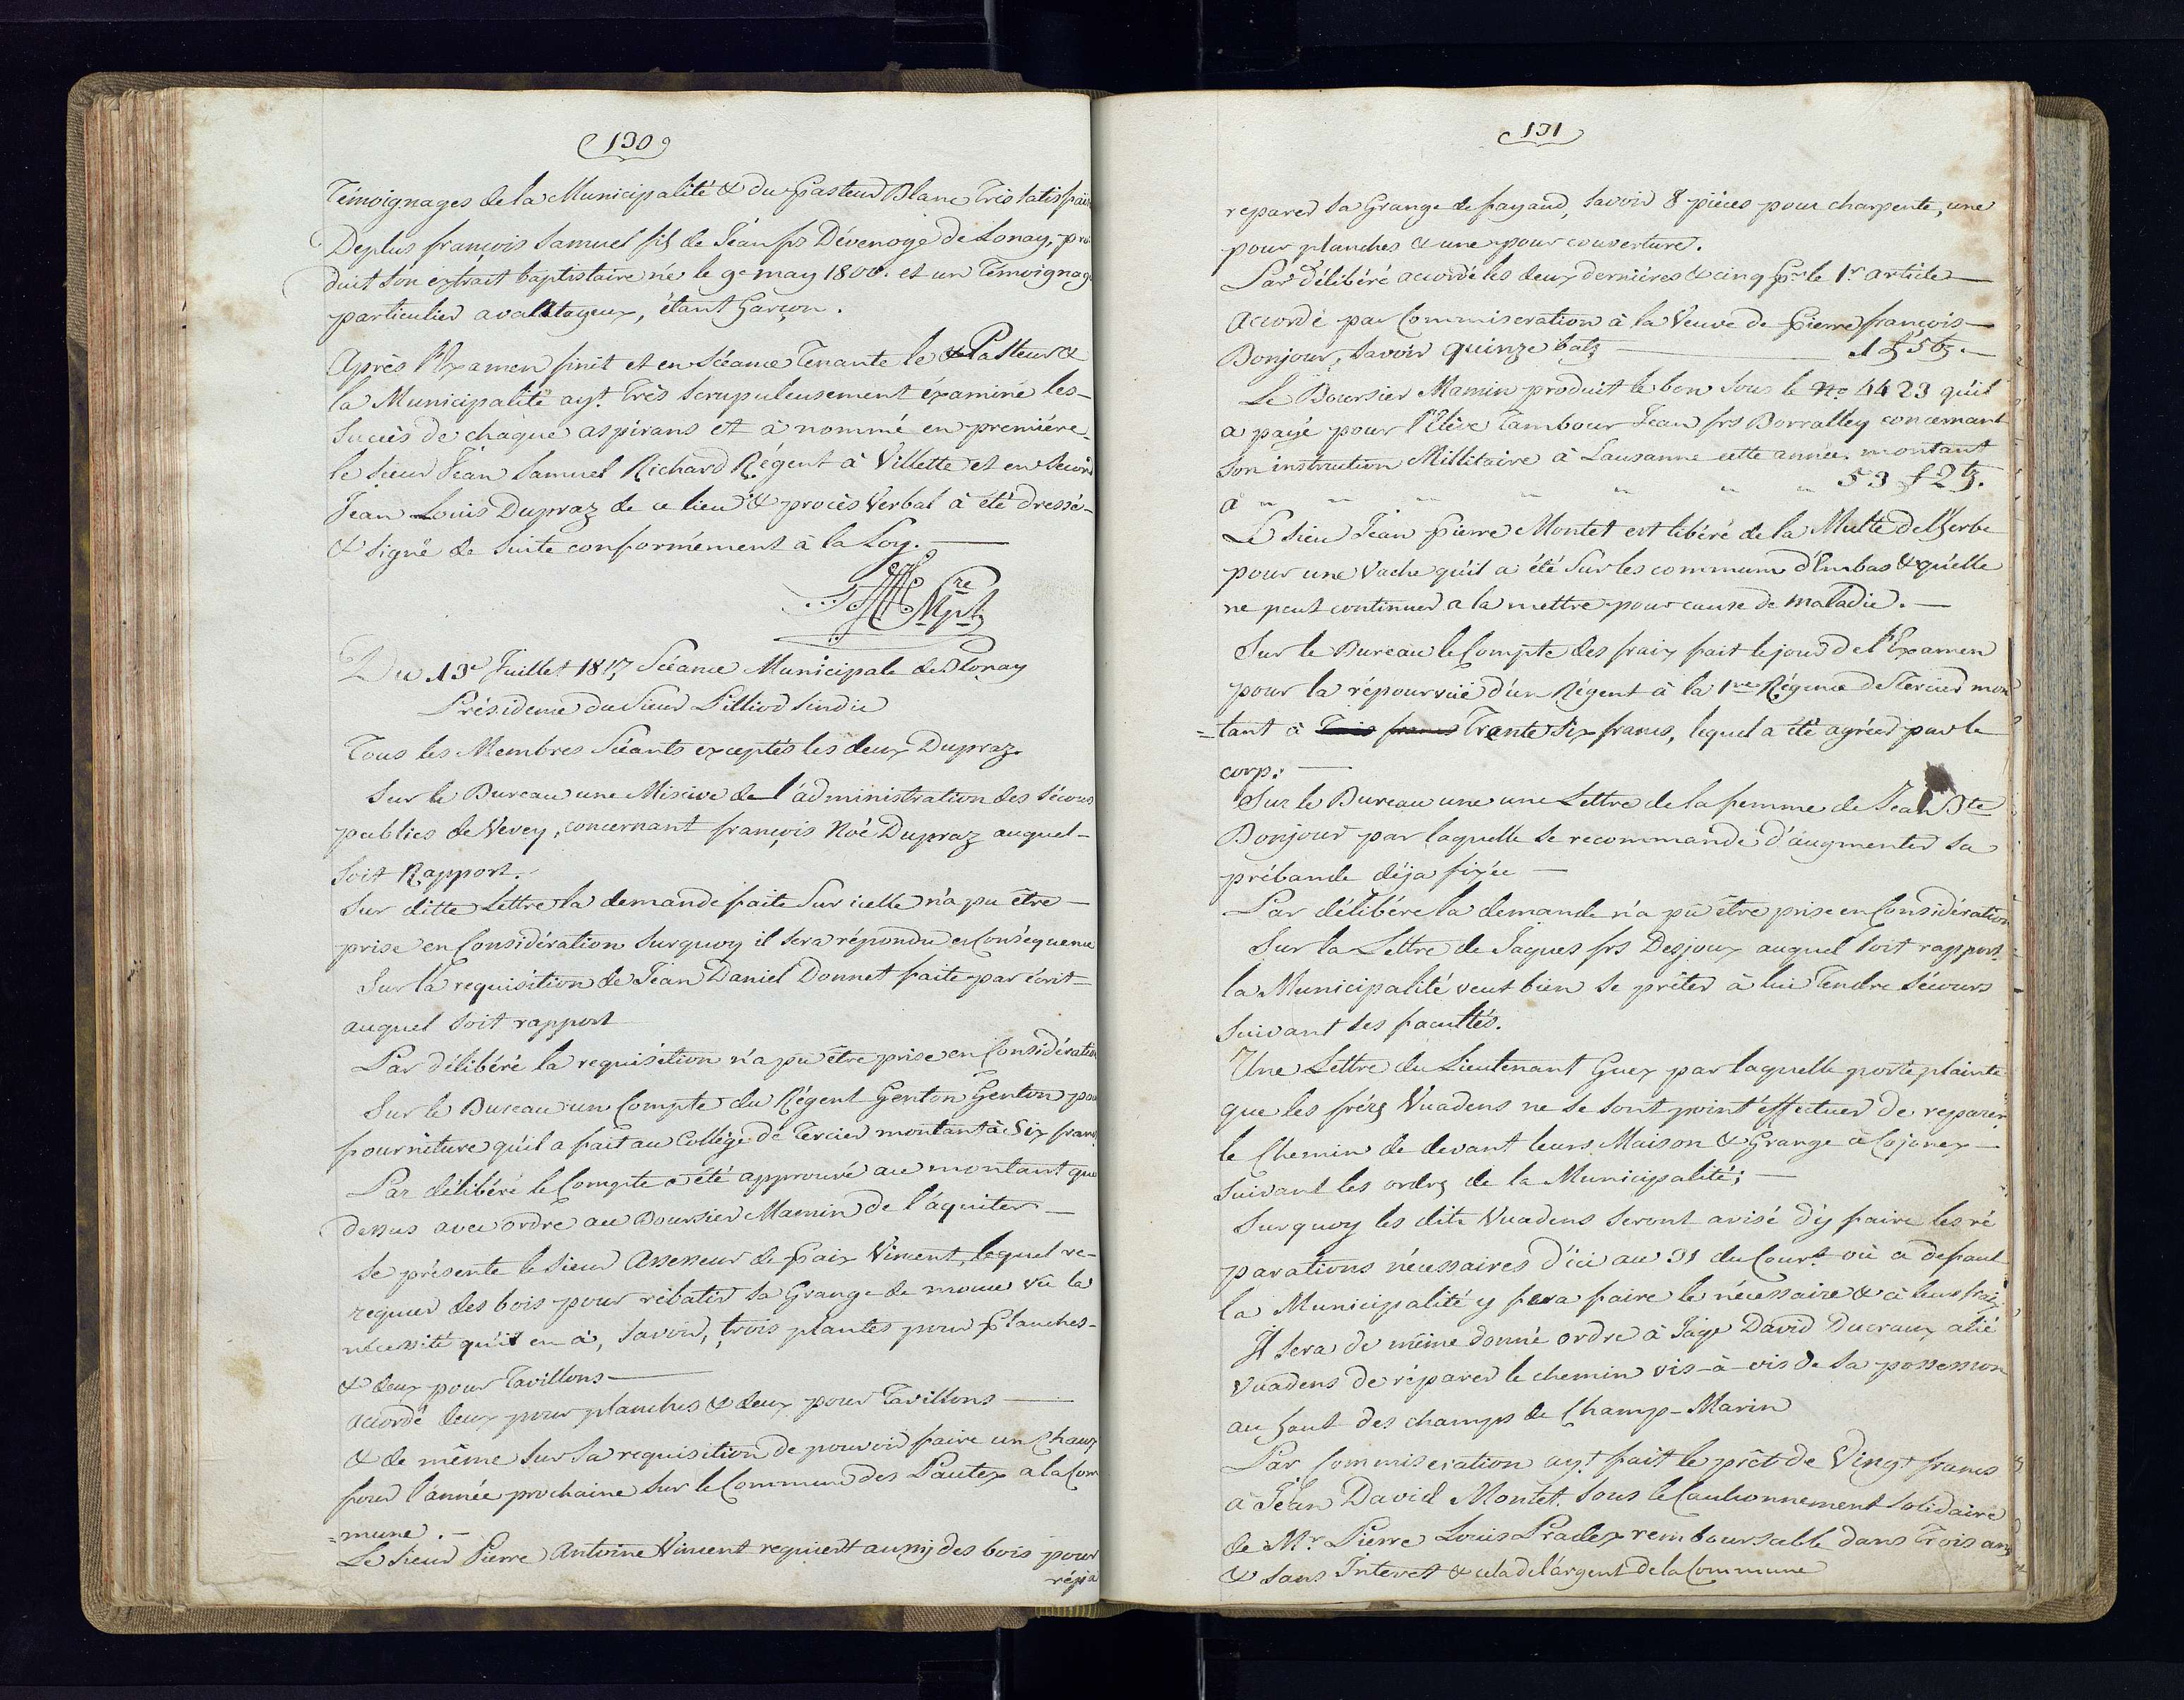 130
Témoignages de la Municipalité & du Pasteur Blanc très satisfais
Deplus françois Samuel fils de Jean frs Dévenoge de Lonay, pro
duit son extrait baptistaire né le 9e may 1800. et un Témoignage
particulier avantageux, étant Garçon.
Après l'Examen finit et en Séance Tenante le Pasteur &
la Municipalité ayt. très Scrupuleusement éxaminé les-
Succès de châque aspirans et à nommé en première-
le Sieur Jean Samuel Richard Régent à Villette et en Second
Jean Louis Dupraz de ce lieu & procès Verbal à été dressé-
& signé de Suite conformément à la Loy.
Du 13e Juillet 1817 Séance Municipale de Blonay
Présidence du Sieur Pilliod Sindic
Tous les Membres Séants exceptés les deux Dupraz.
Sur le Bureau une Misive de l'administration des Sécours
publics de Vevey, concernant françois Noé Dupraz auquel-
Soit Rapport.
Sur ditte Lettre la demande faite Sur icelle n'a pu être-
prise en Considération Surquoy il Sera répondu en Conséquence
Sur la requisition de Jean Daniel Donnet faite par écrit-
auquel Soit rapport
Par délibéré la requisition n'a pu être prise en Considération
Sur le Bureau un Compte du Régent Genton Genton pour
fourniture qu'il a fait au Collège de Tercier montant à Six francs
Par délibéré le Compte a été approuvé au montant que
dessus avec ordre au Boursier Mamin de l'áquiter-
Se présente le Sieur Assesseur de Paix Vincent, lequel re-
requier des bois pour rébatir Sa Grange de moue vû la
nécessité qu'il en à, Savoir, trois plantes pour Planches-
& deux pour Tavillons
accordé deux pour planches & deux pour Tavillons
& de même Sur Sa requisition de pouvoir faire un Chaux
four l'année prochaine Sur le Commun des Pautex a la Com
=mune.-
Le Sieur Pierre Antoine Vincent requiert aussy des bois pour
répa
131
reparer Sa Grange de fayaud, Savoir 8 pièces pour charpente, une
pour planches & une pour couverture.
Par délibéré accordé les deux dernières & cinq pr le 1r. article
Accordé par Commiseration à la Veuve de Pierre françois-
Bonjour, Savoir quinze batz 1 f 5 bz.
Le Boursier Mamin produit le bon Sous le No 4423 qu'il
a payé pour l'Elève Tambour Jean frs Borralley concernant
Son instruction Millitaire à Lausanne cette année montant
a 53 f 2 bz.
Le Sieu Jean Pierre Montet est libéré de la Multe de l'herbe
pour une Vache qu'il a été Sur les communs d'Embas & qu'elle
ne peut continuer a la mettre pour cause de Maladie.-
Sur le Bureau le Compte des fraix fait le jour de l'Examen
pour la répourvüe d'un Régent à la 1re Régence de Tercier mon
=tant à Trois francs Trente Six francs, lequel a été agréer par le
corp.
Sur le Bureau une une Lettre de la femme de Jean Bte
Bonjour par laquelle Se recommande d'augmenter sa
prébande déja fixée
Par délibére la demande n'a pû être prise en Considération
Sur la Lettre de Jaques frs Desjoux auquel Soit rapport
la Municipalité veut bien Se prêter à lui Tendre Sécours
Suivant Ses facultés.
Une Lettre du Lieutenant Guex par laquelle porte plainte
que les frérs Vuadens ne Se Sont point éffectuer de reparer
le Chemin de devant leurs Maison & Grange à Cojonex
Suivant les ordrs de la Municipalité;
Surquoy les dits Vuadens Seront avisé d'y faire les ré
parations nécessaires d'ici au 31 du Cour.t où a défaut
la Municipalité y fera faire le nécessaire & à leur fraix
Il Sera de même donné ordre à Jaqs David Ducraux alié
Vuadens de réparer le chemin vis-à-vis de Sa possession
au haut des champs de Champ-Marin
Par Commiseration ayt. fait le prêt de Vingt francs
à Jean David Montet. Sous le Cautionnement Solidaire
de Mr. Pierre Louis Pradex remboursable dans Trois ans
& Sans Interet & cela de l'argent de la Commune